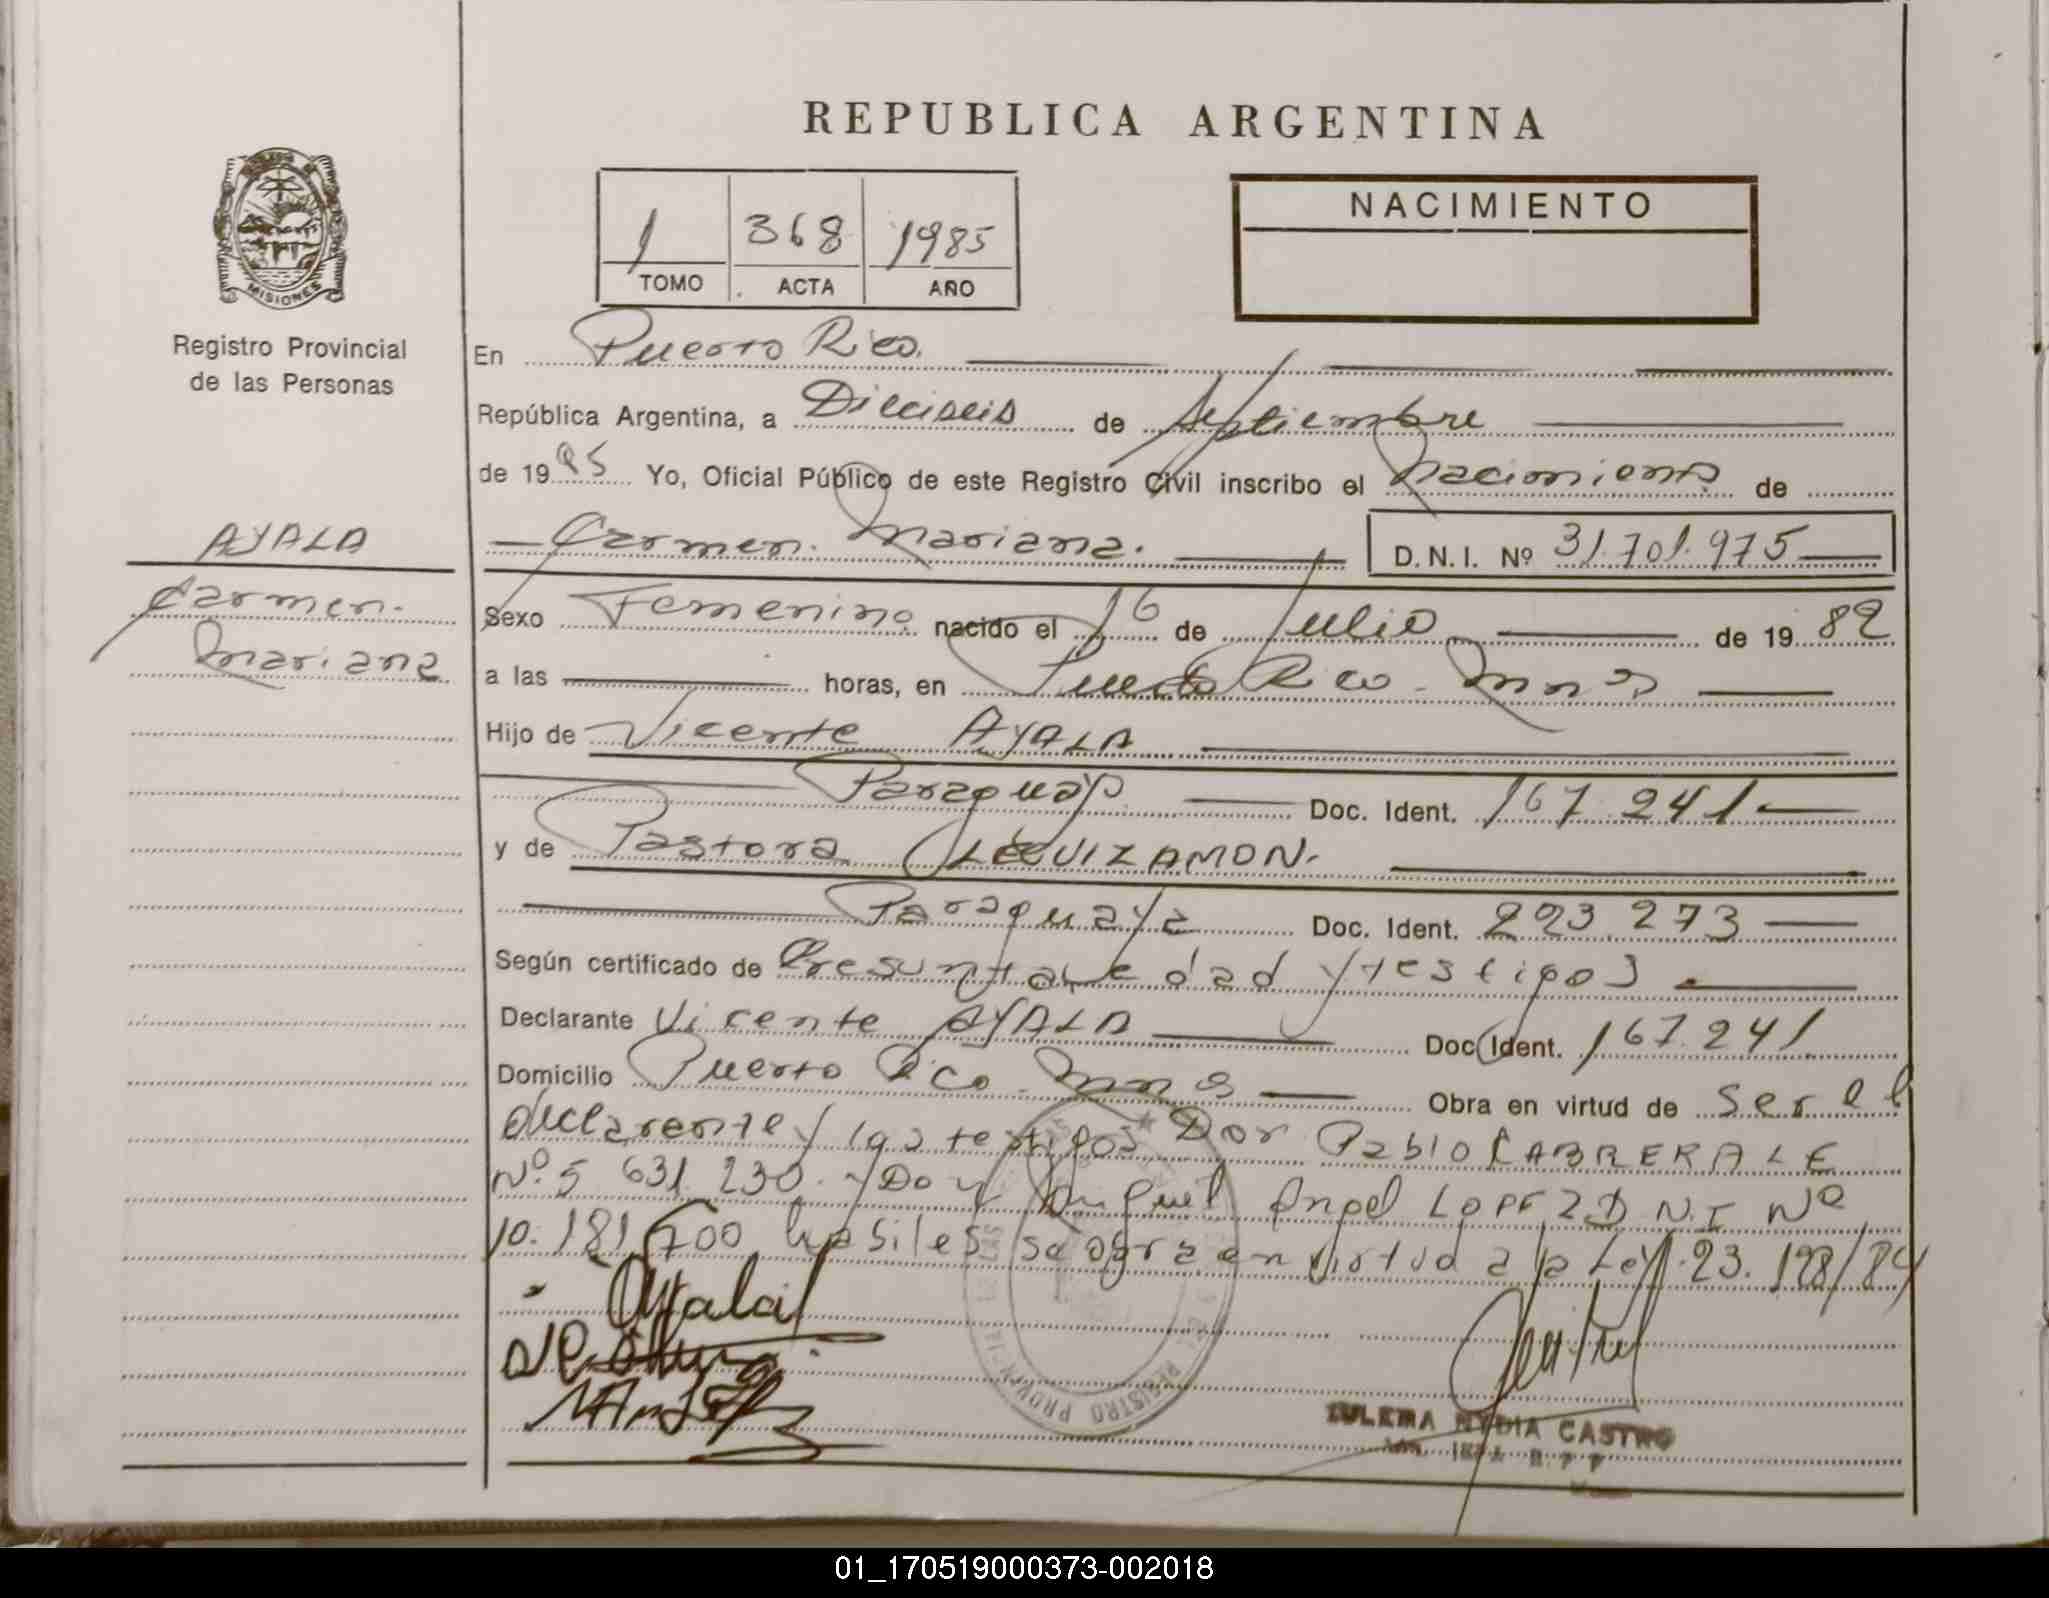 REPUBLICA ARGENTINA
1 368 1985
TOMO ACTA AÑO
NACIMIENTO
MISIONES
Registro Provincial
de las Personas
AYALA
Carmen.
Mariana.
En Puerto Rico.
República Argentina, a Dieciseis de Septiembre
de 1985 Yo, Oficial Público de este Registro Civil inscribo el Nacimiento de
Carmen. Mariana. D. N. I. Nº 31.701.975
Sexo Femenino nacido el 16 de Julio de 1982
a las horas, en Puerto Rico. Mnes
Hijo de Vicente AYALA
Paraguayo Doc. Ident. 167.241
y de Pastora LEGUIZAMON.
Paraguaya Doc. Ident. 223.273
Según certificado de Presunta edad y testigos
Declarante Vicente AYALA Doc Ident. 167.241
Domicilio Puerto Rico. Mnes Obra en virtud de Ser el
declarente y los testigos Don Pablo CABRERA L E
Nº 5 631.230. y Don Miguel Angel LOPEZ D N. I Nº
10.181.700 habiles se obra en virtud a la Ley. 23.128/84
Ayala
REGISTRO PROVINCIAL DE LAS
ZULEMA NYDIA CASTRO
01_170519000373-002018